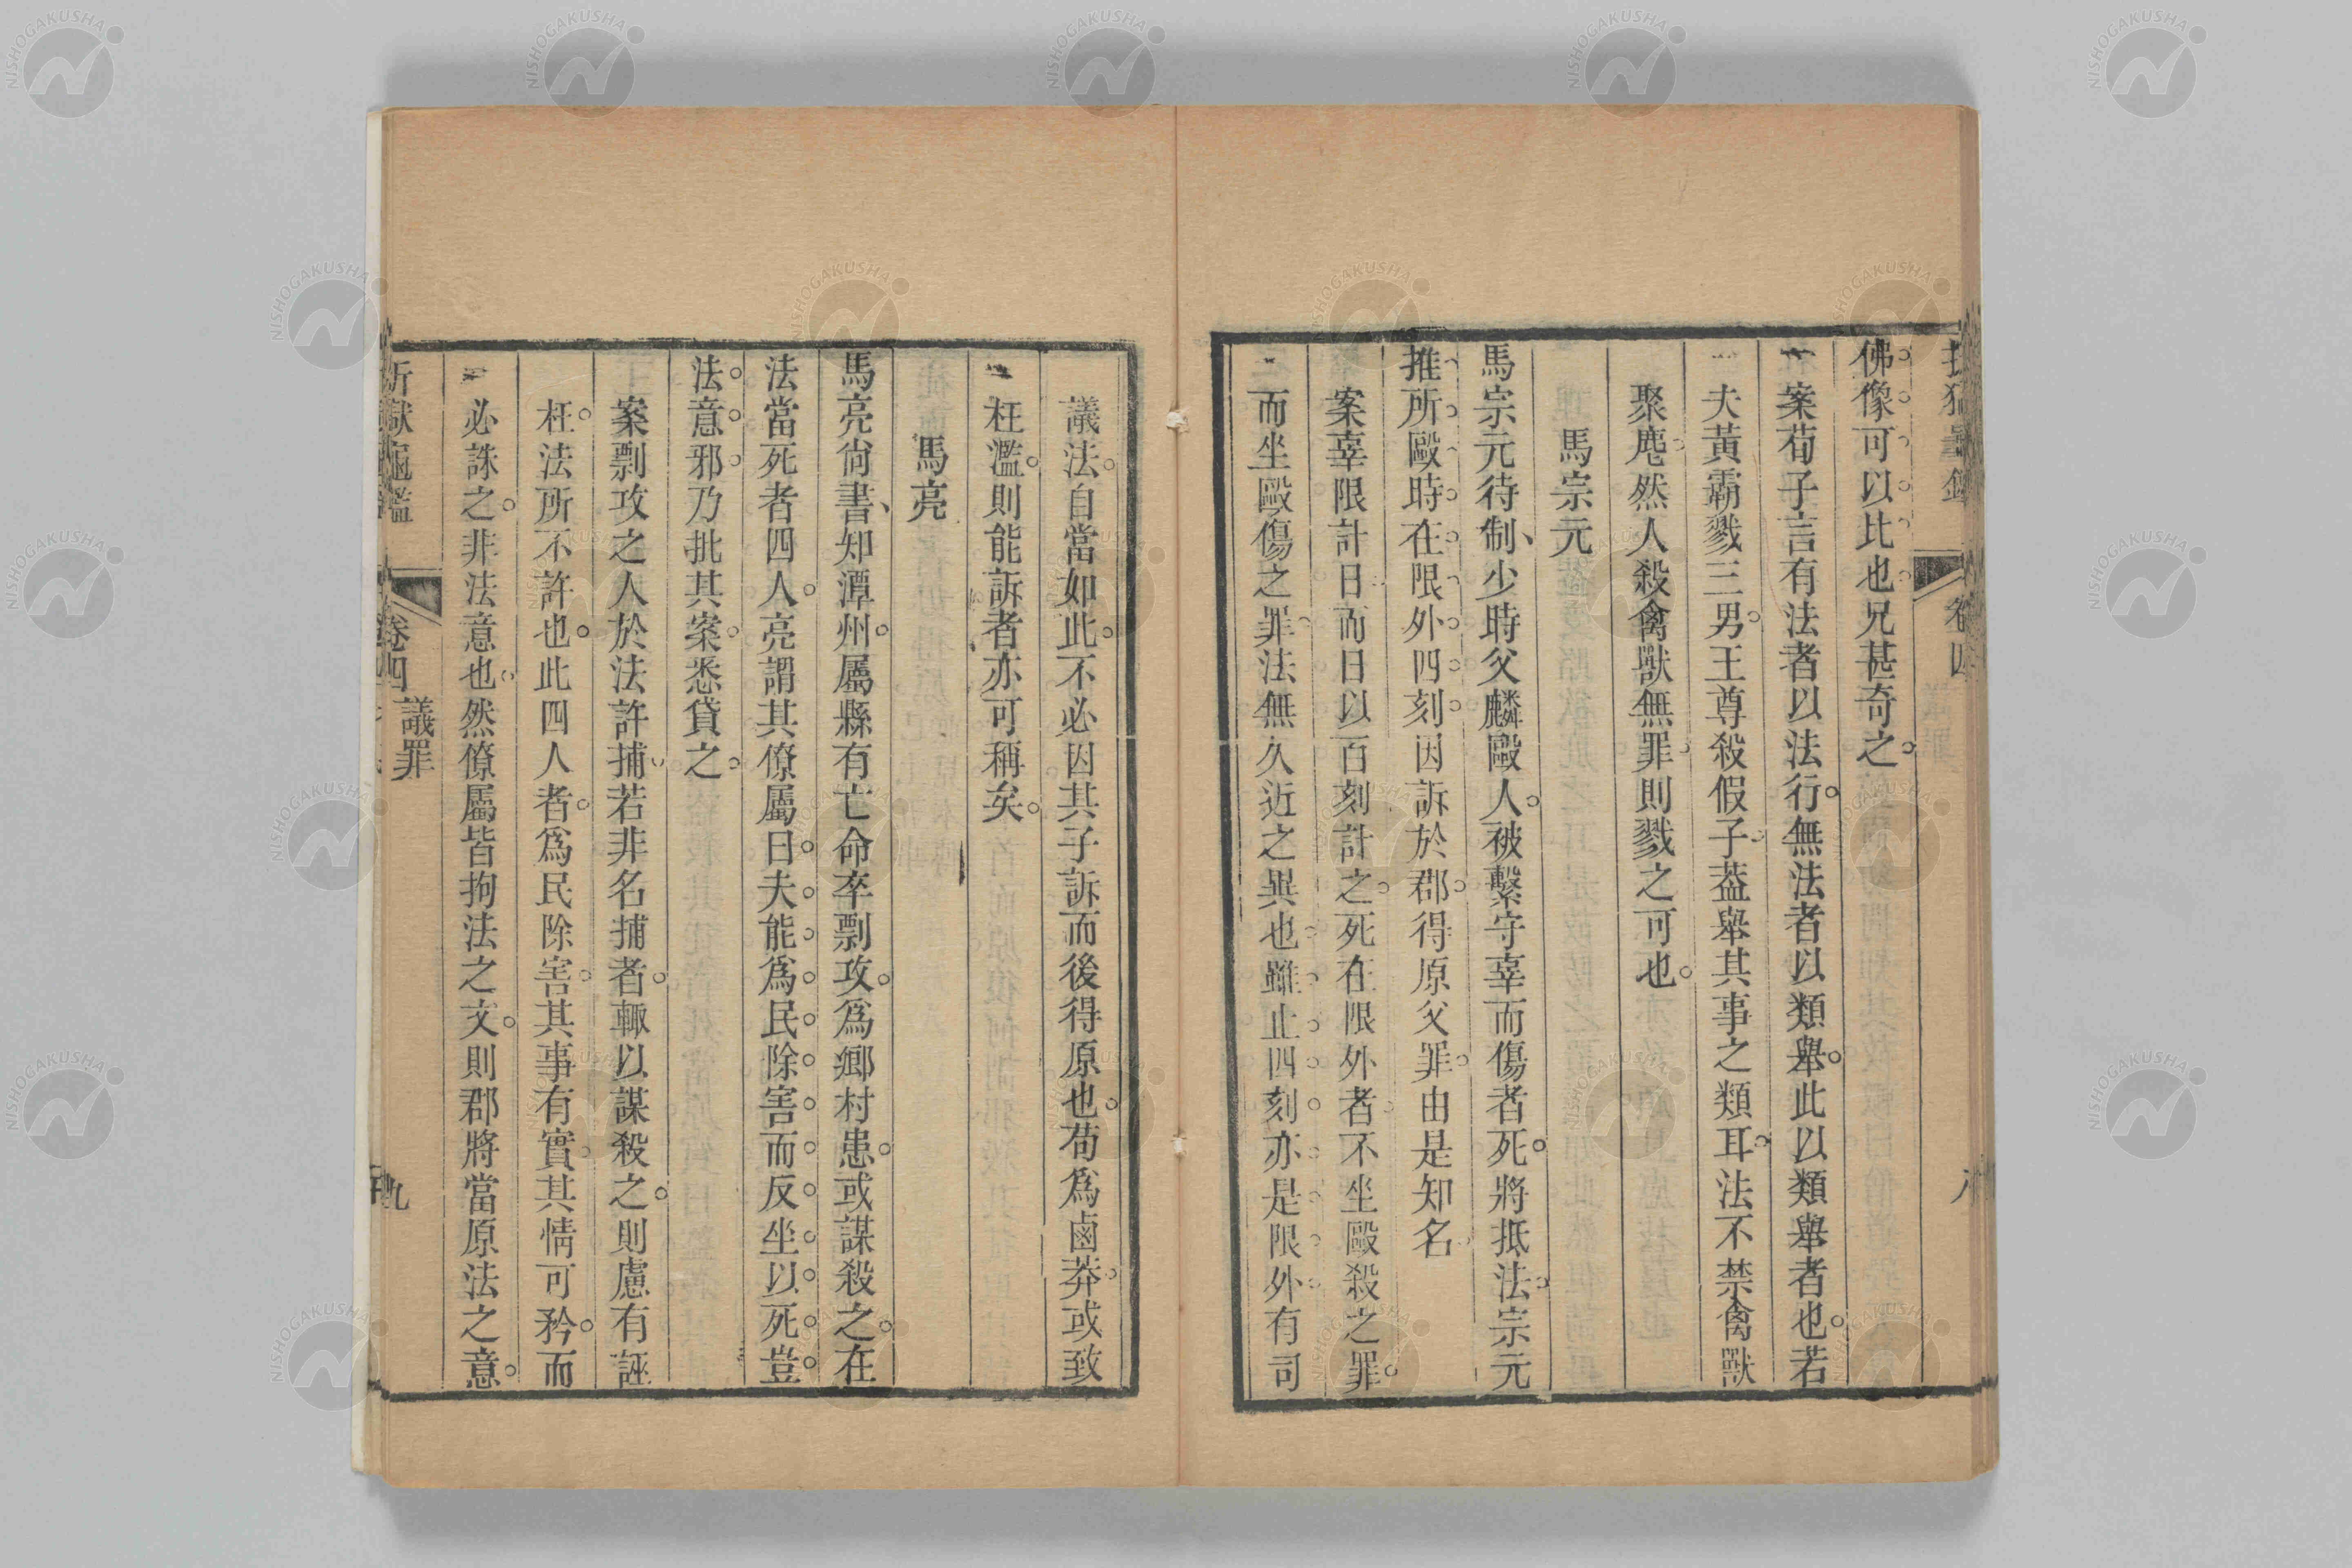 佛像可以比也兄甚奇之
案荀子言有法者以法行無法者以類舉此以類舉者也若
夫黃霸戮三男王尊殺假子葢舉其事之類耳法不禁禽獸
聚麀然人殺禽獸無罪則戮之可也
馬宗元
馬宗元待制少時父麟毆人被繫守辜而傷者死將抵法宗元
推所毆時在限外四刻因訴於郡得原父罪由是知名
案辜限計日而日以百刻計之死在限外者不坐毆殺之罪
而坐毆傷之罪法無久近之異也雖止四刻亦是限外有司
議法自當如此不必因其子訴而後得原也苟爲鹵莽或致
枉濫則能訴者亦可稱矣
馬亮
馬亮尚書知潭州屬縣有亡命卒剽攻爲鄉村患或謀殺之在
法當死者四人亮謂其僚屬曰夫能爲民除害而反坐以死豈
法意邪乃批其案悉貸之
案剽攻之人於法許捕若非名捕者輒以謀殺之則慮有誣
枉法所不許也此四人者爲民除害其事有實其情可矜而
必誅之非法意也然僚屬皆拘法之文則郡將當原法之意
卷四
議罪
九
NISHOGAKUSHA